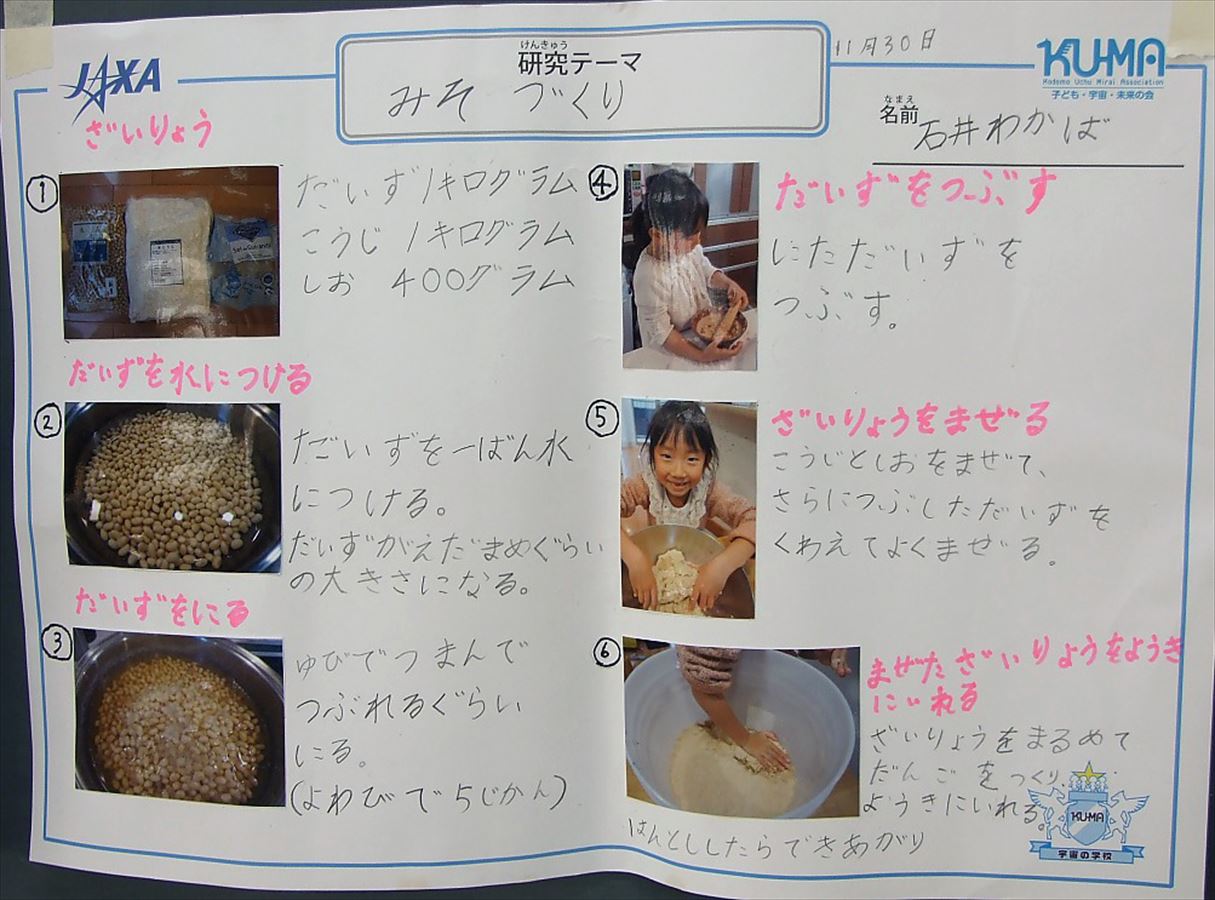 JAXA
けんきゅう
研究テーマ
みそ づくり
11月30日
KU-MA
Kodomo Uchu Mirai Association
子ども・宇宙・未来の会
なまえ
名前
石井わかば
ざいりょう
①
だいず1キログラム
こうじ 1キログラム
しお 400グラム
だいずを水につける
②
だいずを一ばん水
につける。
だいずがえだまめぐらい
の大きさになる。
だいずをにる
③
ゆびでつまんで
つぶれるぐらい
にる。
(よわびで5じかん)
④
だいずをつぶす
にただいずを
つぶす。
⑤
ざいりょうをまぜる
こうじとしおをまぜて、
さらにつぶしただいずを
くわえてよくまぜる。
⑥
まぜたざいりょうをようき
にいれる
ざいりょうをまるめて
だんごをつくり、
ようきにいれる。
はんとししたらできあがり
KU-MA
宇宙の学校